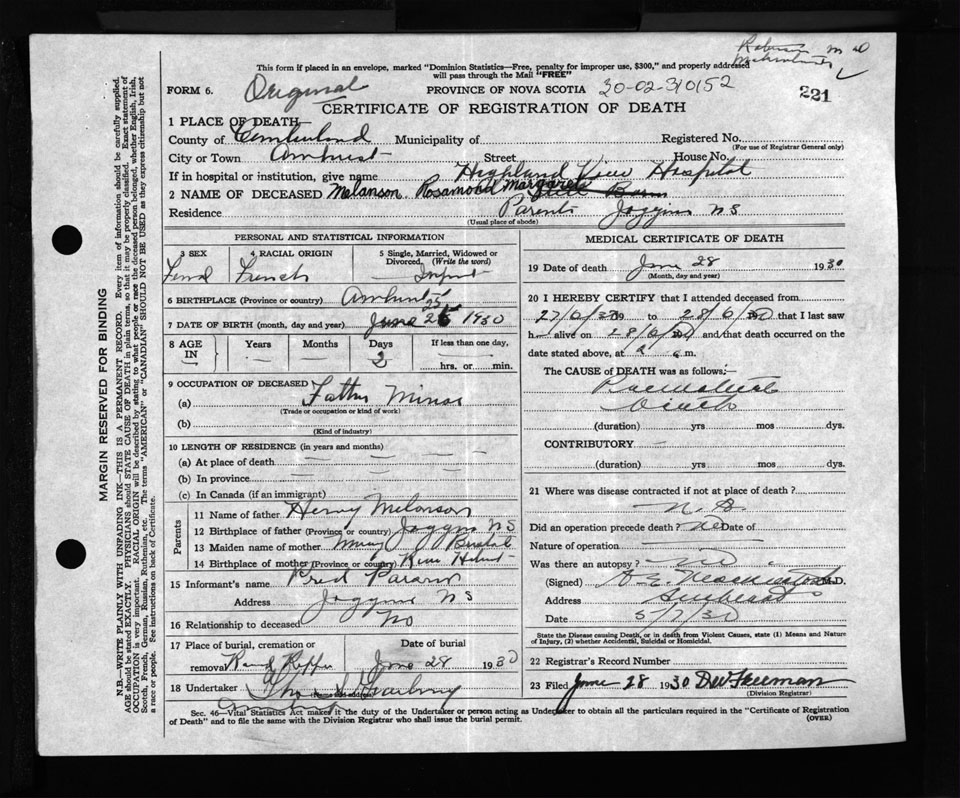 This form if placed in an envelope, marked "Dominion Statistics—Free, penalty for improper use, $300," and properly addressed
will pass through the Mail "FREE"
FORM 6. Original PROVINCE OF NOVA SCOTIA 30-02-310152
221
CERTIFICATE OF REGISTRATION OF DEATH
1 PLACE OF DEATH
County of Cumberland Municipality of Registered No.
(For use of Registrar General only)
City or Town Amherst Street House No.
If in hospital or institution, give name Highland View Hospital
2 NAME OF DECEASED Melanson Rosamond Margaret
Residence Parents Joggins NS
(Usual place of abode)
PERSONAL AND STATISTICAL INFORMATION
3 SEX
4 RACIAL ORIGIN French
5 Single, Married, Widowed or Divorced, (Write the word) Infant
6 BIRTHPLACE (Province or country) Amherst
7 DATE OF BIRTH (month, day and year) June 25 1930
8 AGE IN Years Months Days 2 If less than one day, hrs. or min.
9 OCCUPATION OF DECEASED
(a) Father Miner
(Trade or occupation or kind of work)
(b)
(Kind of industry)
10 LENGTH OF RESIDENCE (in years and months)
(a) At place of death
(b) In province
(c) In Canada (if an immigrant)
Parents
11 Name of father Henry Melanson
12 Birthplace of father (Province or country) Joggins NS
13 Maiden name of mother
14 Birthplace of mother (Province or country) River Hebert
15 Informant's name Fred
Address Joggins NS
16 Relationship to deceased No
17 Place of burial, cremation or removal Date of burial June 28 1930
18 Undertaker
MEDICAL CERTIFICATE OF DEATH
19 Date of death June 28 1930
(Month, day and year)
20 I HEREBY CERTIFY that I attended deceased from
27/6/30 to 28/6/30 that I last saw
h alive on 28/6/30 and that death occurred on
date stated above, at m.
The CAUSE of DEATH was as follows:—
(duration) yrs mos dys.
CONTRIBUTORY
(duration) yrs mos dys.
21 Where was disease contracted if not at place of death?
Did an operation precede death? no Date of
Nature of operation
Was there an autopsy? no
(Signed) M.D.
Address Amherst
Date 5/7/30
State the Disease causing Death, or in death from Violent Causes, state (1) Means and Nature
of Injury, (2) whether Accidental, Suicidal or Homicidal.
22 Registrar's Record Number
23 Filed June 28 1930 DW Freeman
(Division Registrar)
Sec. 46—Vital Statistics Act makes it the duty of the Undertaker or person acting as Undertaker to obtain all the particulars required in the "Certificate of Registration
of Death" and to file the same with the Division Registrar who shall issue the burial permit. (OVER)
MARGIN RESERVED FOR BINDING
N.B.—WRITE PLAINLY WITH UNFADING INK—THIS IS A PERMANENT RECORD. Every item of information should be carefully supplied.
AGE should be stated EXACTLY. PHYSICIANS should STATE CAUSE OF DEATH in plain terms, so that it may be properly classified. Exact statement of
OCCUPATION is very important. RACIAL ORIGIN will be described by stating to what people or race the deceased person belonged, whether English, Irish,
Scotch, French, German, Russian, Ruthenian, etc. The terms "AMERICAN" or "CANADIAN" SHOULD NOT BE USED as they express citizenship but not
a race or people. See instructions on back of Certificate.